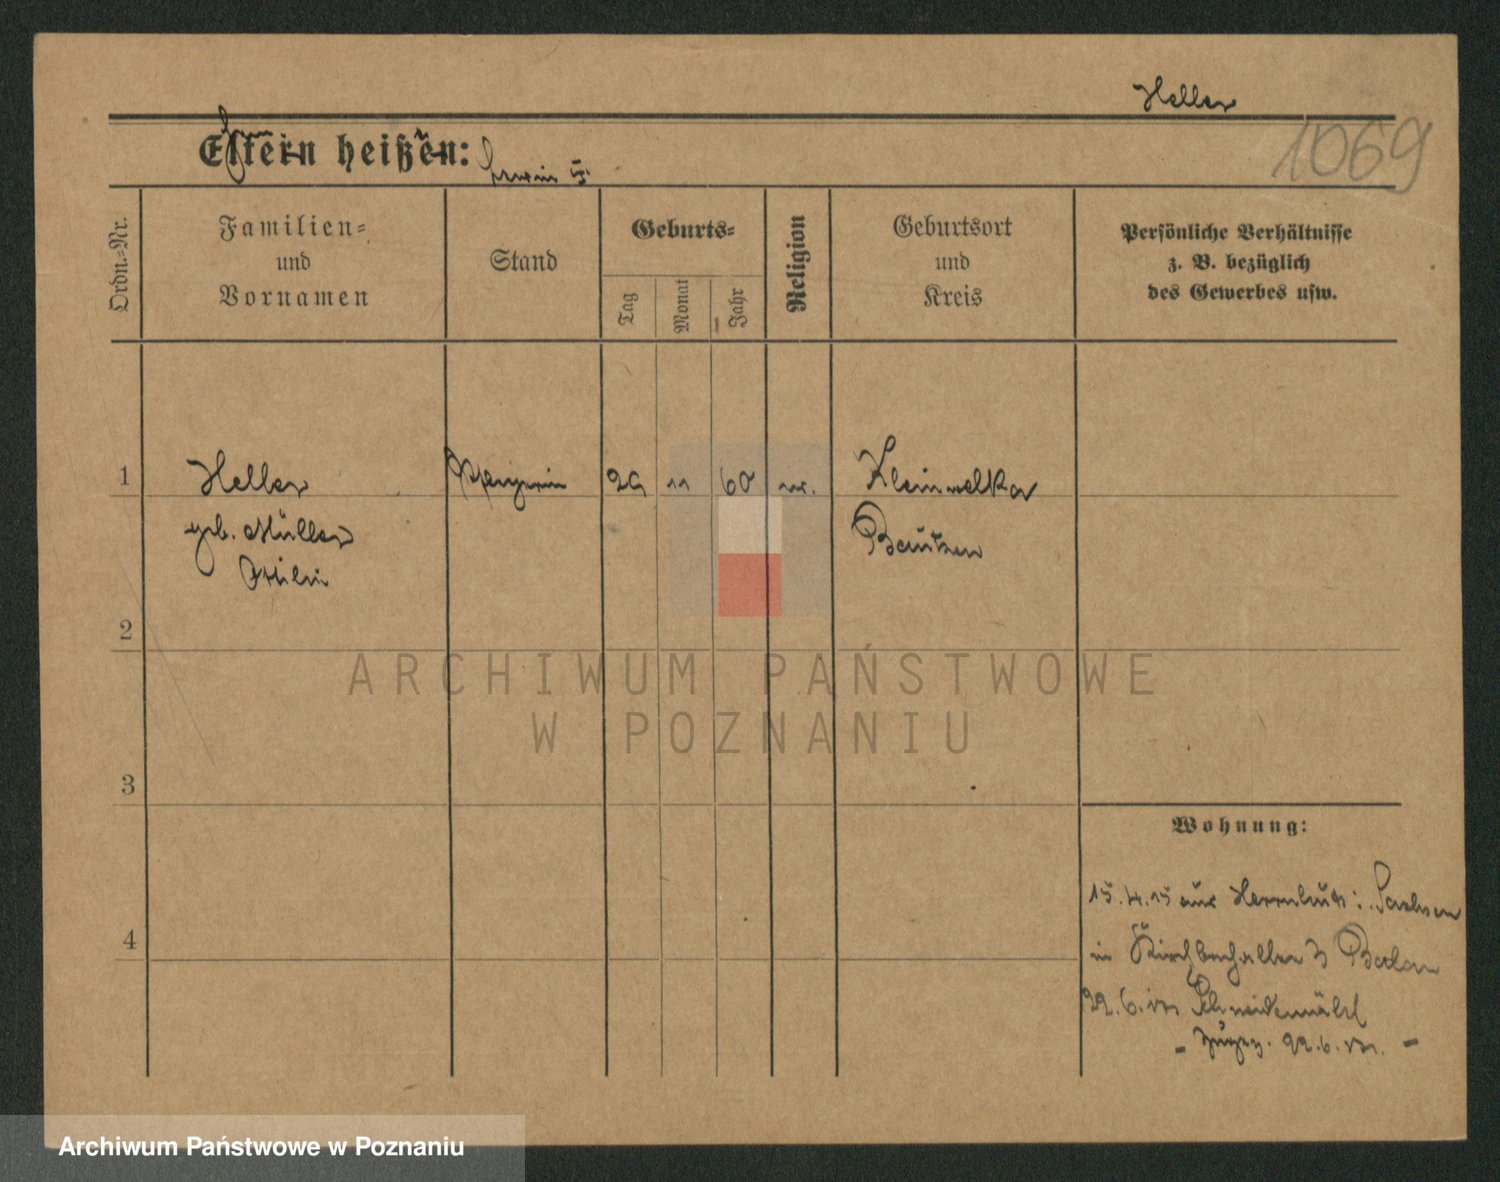 Heller
1069
Eltern heißen:
Ordn.-Nr.
Familien-
und
Vornamen
Stand
Geburts-
Tag
Monat
Jahr
Religion
Geburtsort
und
Kreis
Persönliche Verhältnisse
z. B. bezüglich
des Gewerbes usw.
1 Heller 29 11 60 Kleinwelka
geb. Müller Bautzen
2
3
4
Wohnung:
15.4.15 aus Herrnhut i. Sachsen
in 3
22.6. Schneidemühl
22.6.
ARCHIWUM PAŃSTWOWE
W POZNANIU
Archiwum Państwowe w Poznaniu